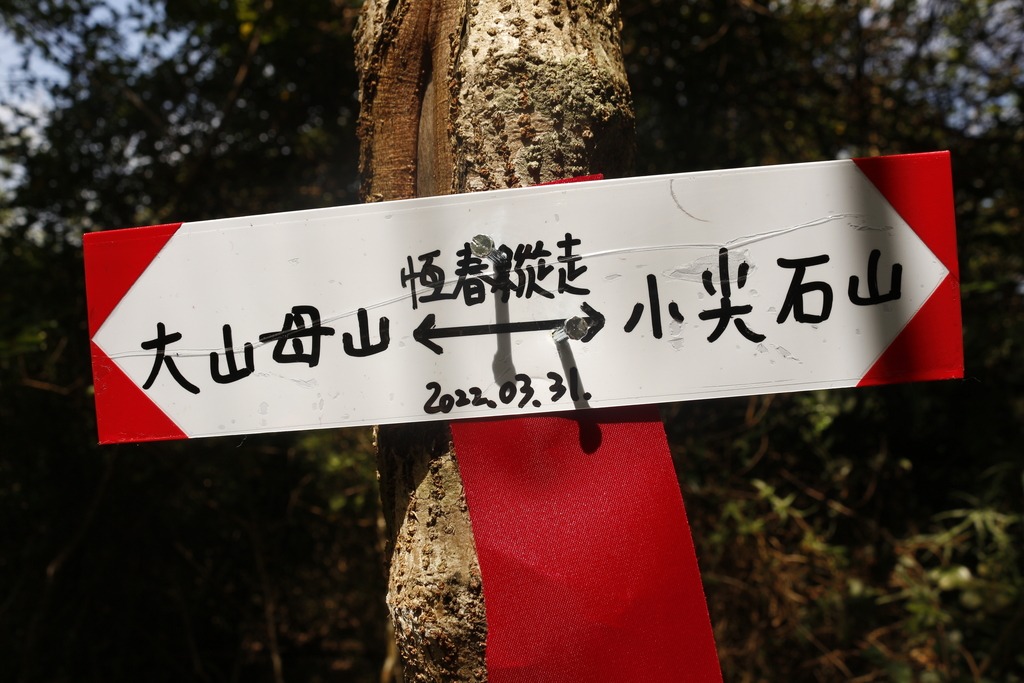 恆春縱走
大山母山 ↔ 小尖石山
2022.03.31.